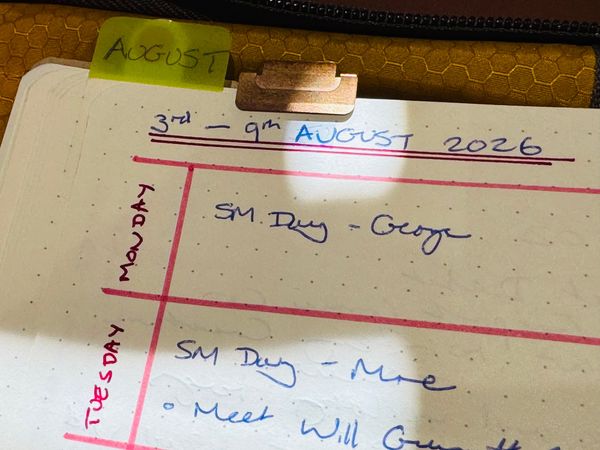 AUGUST
3rd — 9th AUGUST 2026
MONDAY
SM Day - George
TUESDAY
SM Day - Me
• Meet Will